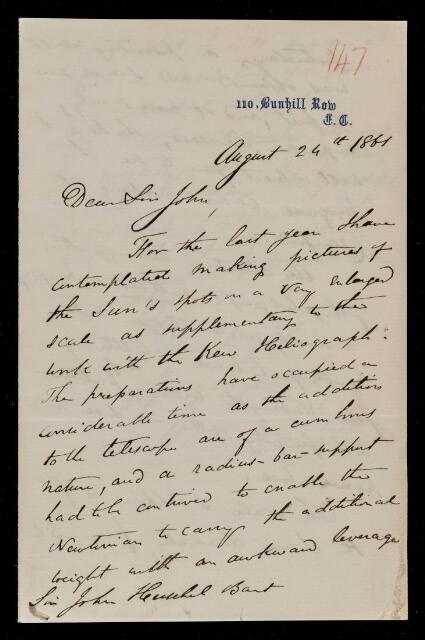 147
110, Bunhill Row
E. C.
August 24th 1861
Dear Sir John,
For the last year I have
contemplated making pictures of
the Sun's spots on a very enlarged
scale as supplementary to the
work with the Kew Heliograph.
The preparations have occupied a
considerable time as the additions
to the telescope are of a cumbrous
nature, and a radius-bar-support
had to be contrived to enable the
Newtonian to carry the additional
weight with an awkward leverage
Sir John Herschel Bart